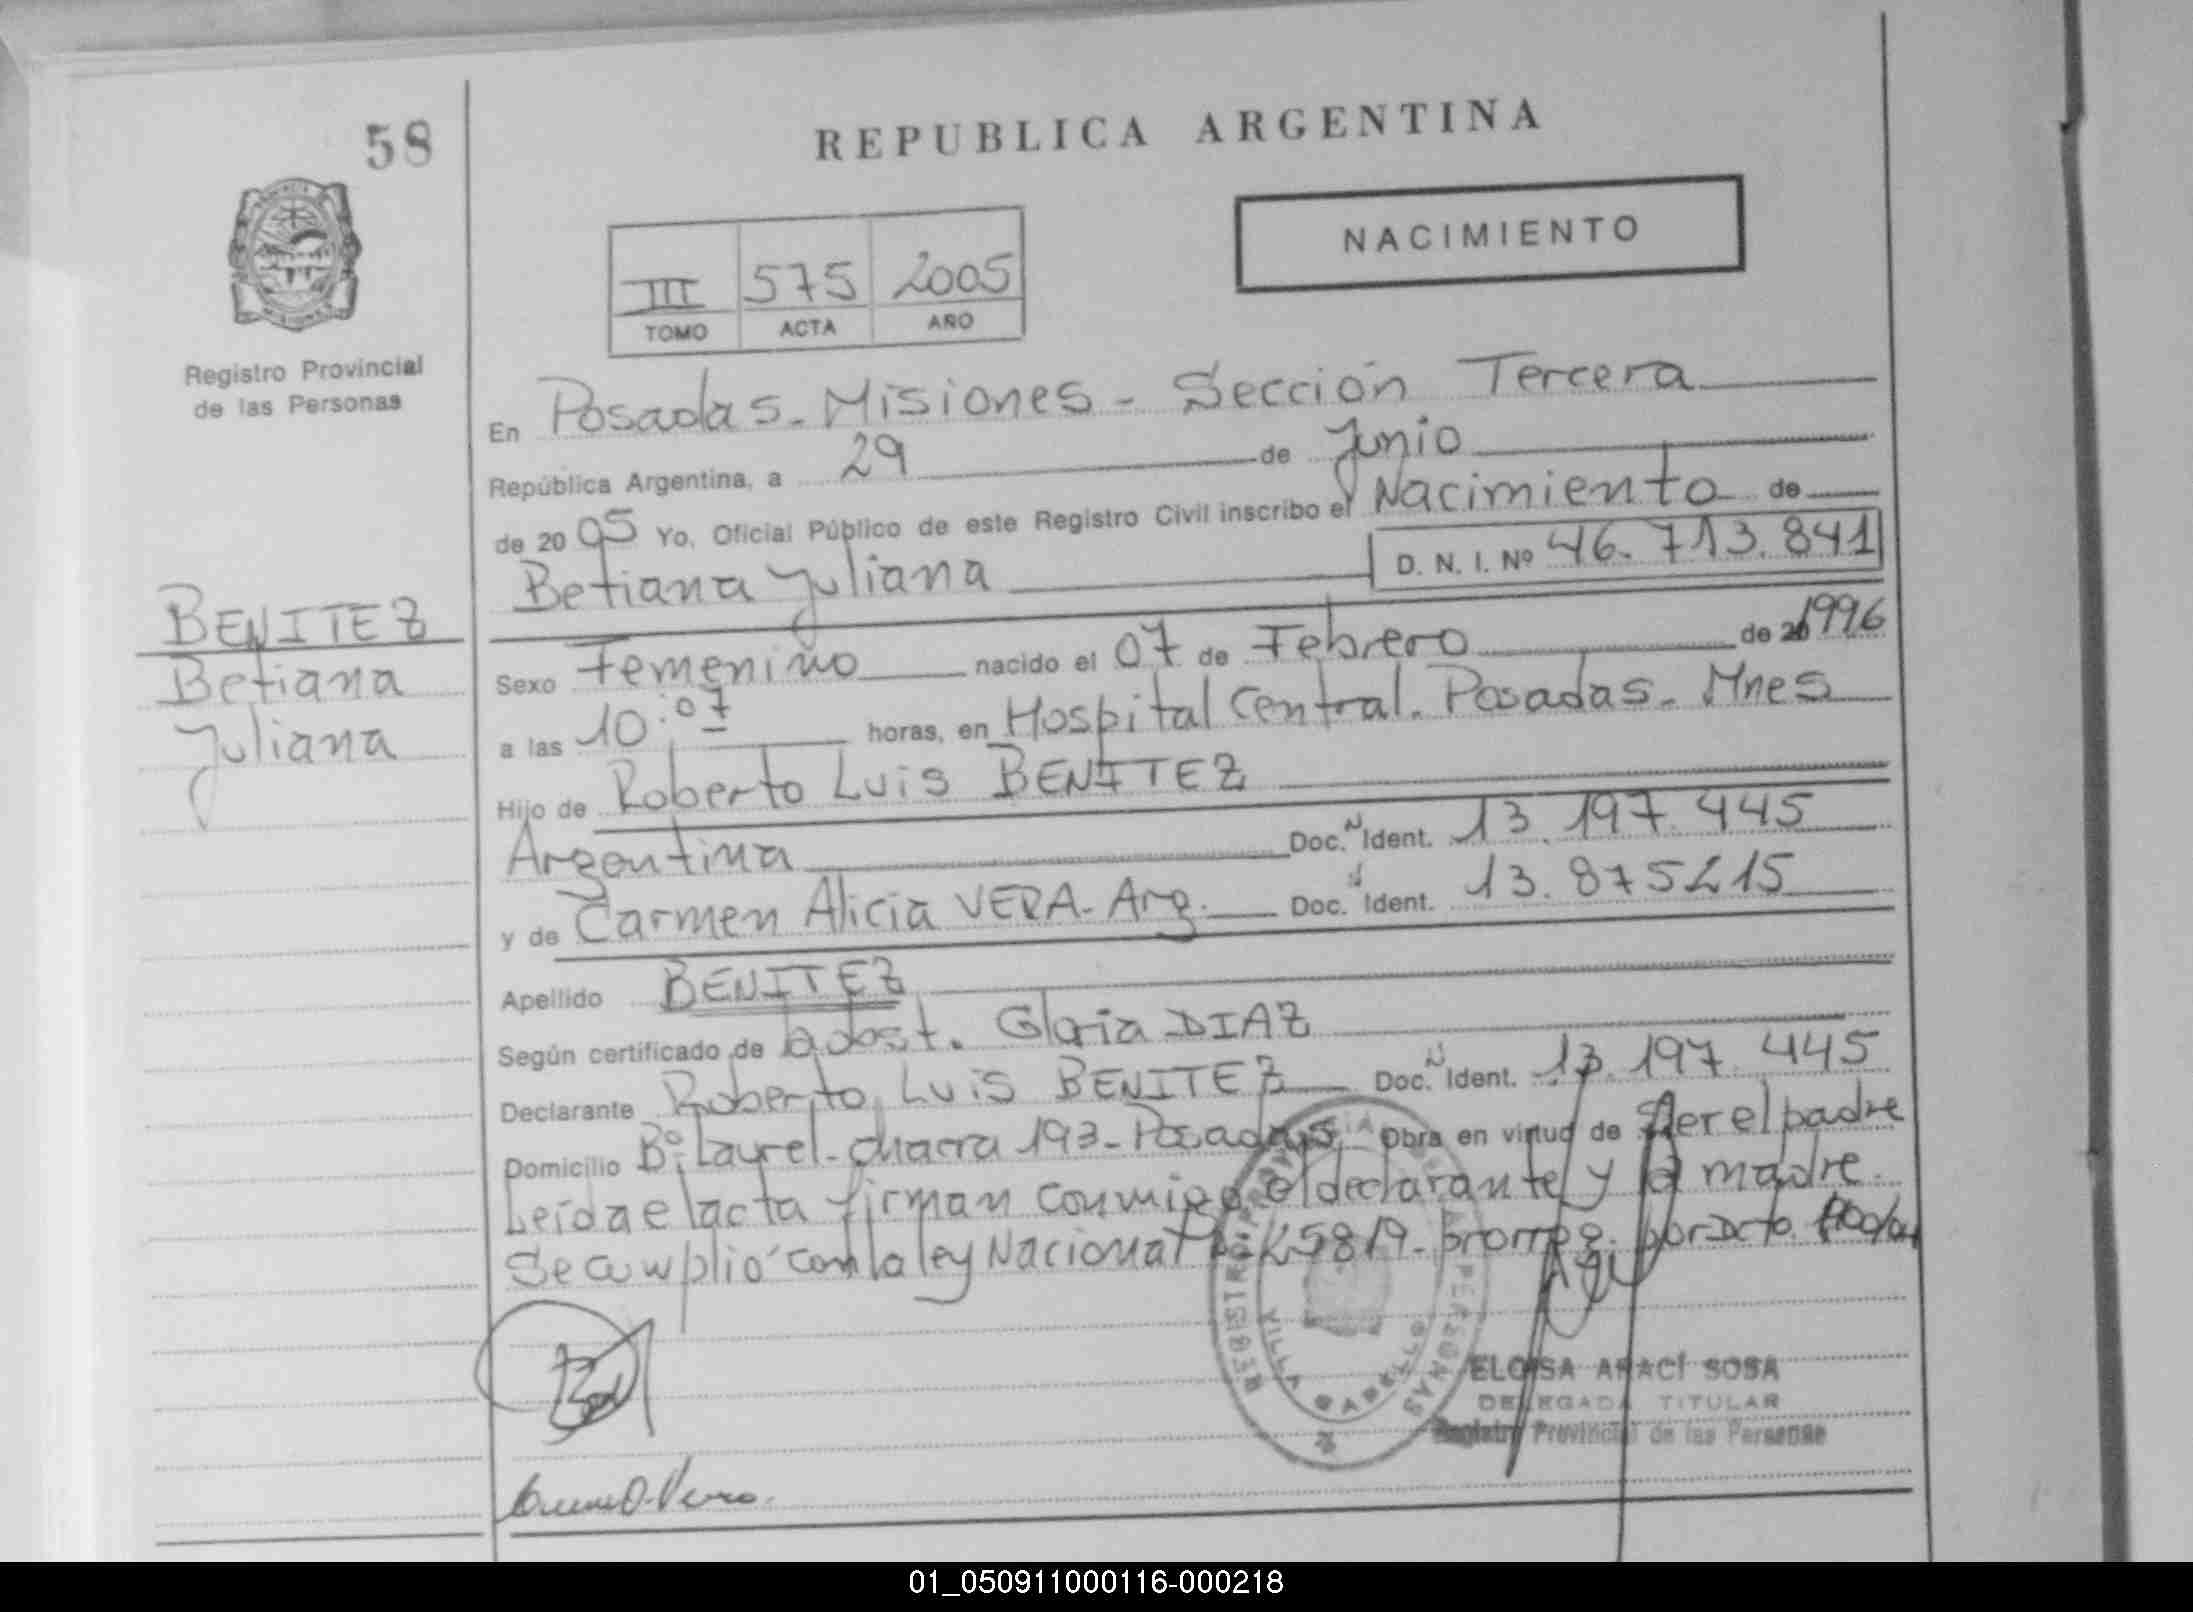 58
REPUBLICA ARGENTINA
NACIMIENTO
III 575 2005
TOMO ACTA AÑO
Registro Provincial
de las Personas
En Posadas - Misiones - Sección Tercera
República Argentina, a 29 de Junio
de 2005 Yo, Oficial Público de este Registro Civil inscribo el Nacimiento de
Betiana Juliana D. N. I. Nº 46.713.841
BENITEZ
Betiana
Juliana
Sexo Femenino nacido el 07 de Febrero de 1996
a las 10:07 horas, en Hospital Central. Posadas - Mnes
Hijo de Roberto Luis BENITEZ
Argentina Doc. N Ident. 13.197.445
y de Carmen Alicia VERA - Arg. Doc. Ident. 13.875215
Apellido BENITEZ
Según certificado de obst. Gloria DIAZ
Declarante Roberto Luis BENITEZ Doc. N Ident. 13.197.445
Domicilio Bº Laurel - chacra 193 - Posadas Obra en virtud de ser el padre
Leída el acta firman conmigo el declarante y la madre.
Se cumplió con la ley Nacional 25819 - prorrog. por Dcto.
REGISTRO PROVINCIAL DE LAS PERSONAS
VILLA CABELLO
ELOISA ARACÍ SOSA
DELEGADA TITULAR
Registro Provincial de las Personas
01_050911000116-000218